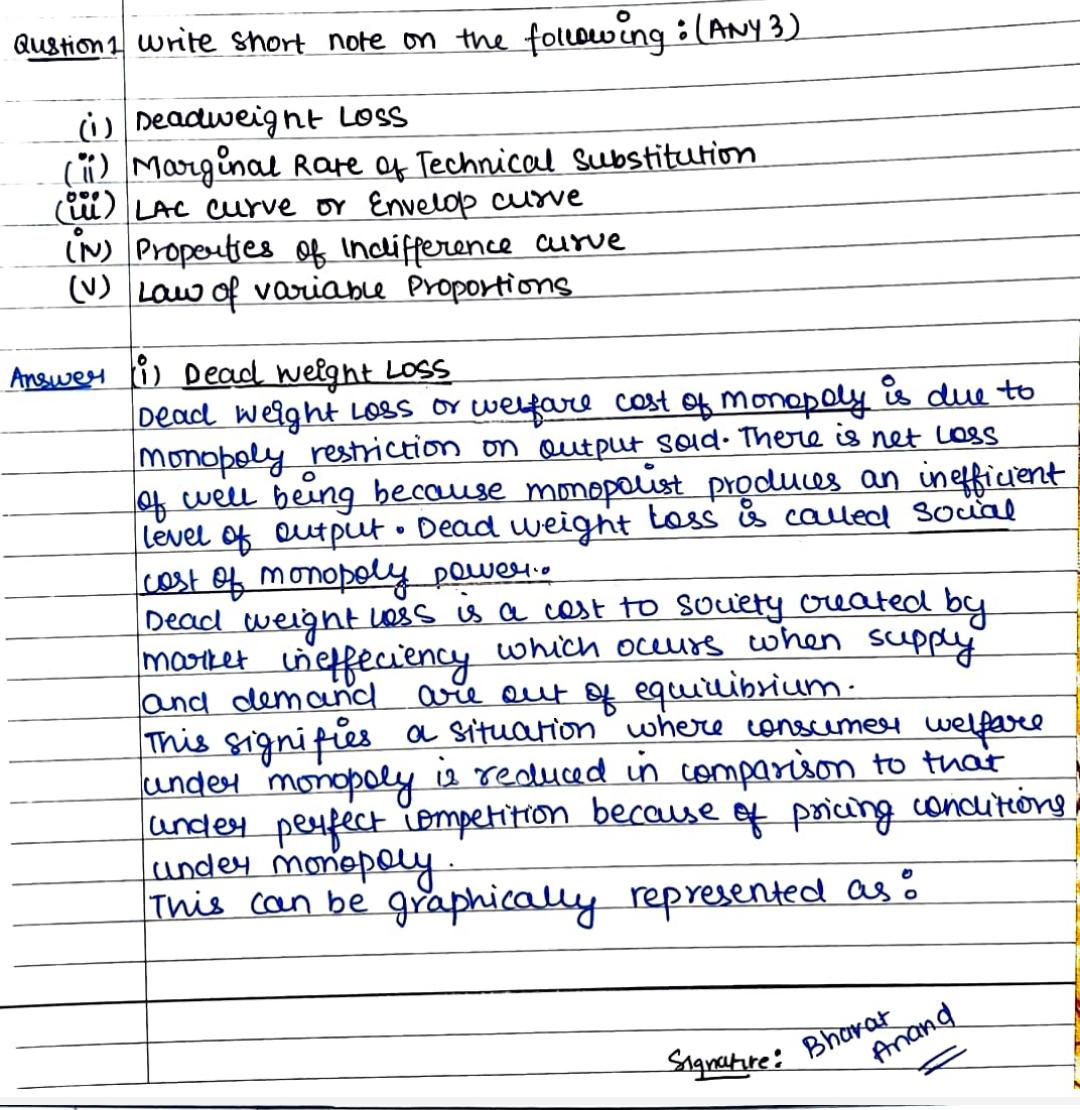 Qustion 1 write short note on the following : (ANY 3)
(i) Deadweight Loss
(ii) Marginal Rate of Technical Substitution
(iii) LAC curve or Envelop curve
(iv) Properties of Indifference curve
(v) Law of variable Proportions
Answer (i) Dead weight Loss
Dead weight Loss or welfare cost of monopoly is due to
monopoly restriction on output sold. There is net Loss
of well being because monopolist produces an inefficient
level of output. Dead weight Loss is called social
cost of monopoly power.
Dead weight loss is a cost to society created by
market ineffeciency which occurs when supply
and demand are out of equilibrium.
This signifies a situation where consumer welfare
under monopoly is reduced in comparison to that
under perfect competition because of pricing conditions
under monopoly.
This can be graphically represented as :
Signature : Bharat
Anand